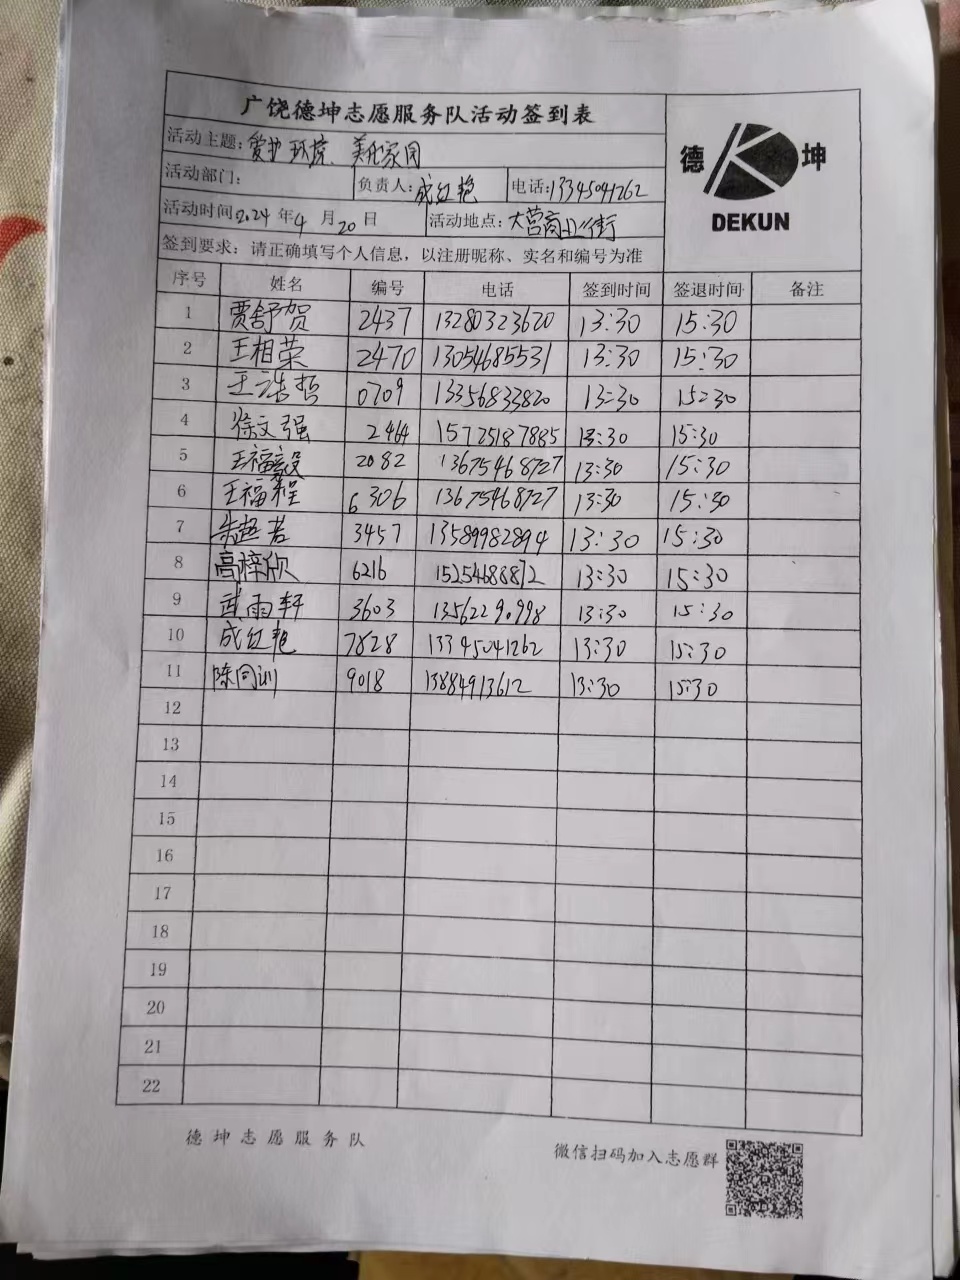 广饶德坤志愿服务队活动签到表
德 坤
DEKUN
活动主题：爱护环境、美化家园
活动部门： 负责人：成红艳 电话：13345041262
活动时间：2024年4月20日 活动地点：大营商业街
签到要求：请正确填写个人信息，以注册昵称、实名和编号为准
序号 姓名 编号 电话 签到时间 签退时间 备注
1 贾舒贺 2437 13280323620 13:30 15:30
2 王相荣 2470 13054685531 13:30 15:30
3 王浩哲 0709 13356833820 13:30 15:30
4 徐文强 2464 15725187885 13:30 15:30
5 王福毅 2082 13675468727 13:30 15:30
6 王福程 6306 13675468727 13:30 15:30
7 朱超若 3457 13589982894 13:30 15:30
8 高梓欣 6216 15254688872 13:30 15:30
9 武雨轩 3603 13:30 15:30
10 成红艳 7828 13345041262 13:30 15:30
11 陈同训 9018 15884913612 13:30 15:30
12
13
14
15
16
17
18
19
20
21
22
德坤志愿服务队
微信扫码加入志愿群